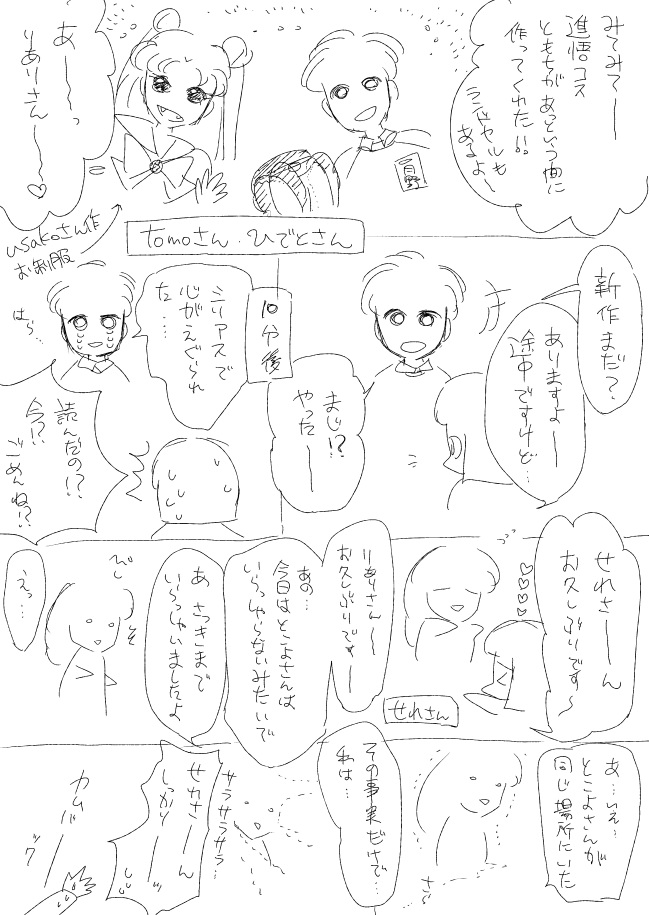 みてみてー
進悟コス
ともちがあっという間に
作ってくれた!!
ランドセルも
あるよー
百野
あー〜っ
りありさんー〜
usakoさん作
お制服
tomoさん・ひでとさん
新作まだ?
ありますよー
途中ですけど…
まじ!?
やったー
10分後
シリアスで
心がえぐられ
た……
はら…
読んだの!?
今!?
ごめんね!?
せれさーん
お久しぶりです〜
せれさん
りありさん〜
お久しぶりですー
あの…
今日はとこよさんは
いらっしゃらないみたいで
あ さっきまで
いらっしゃいましたよ
えっ…
あ…いえ…
とこよさんが
同じ場所にいた
その事実だけで…
私は…
サラサラサラ…
せれさーん
しっかりー
カムバーック